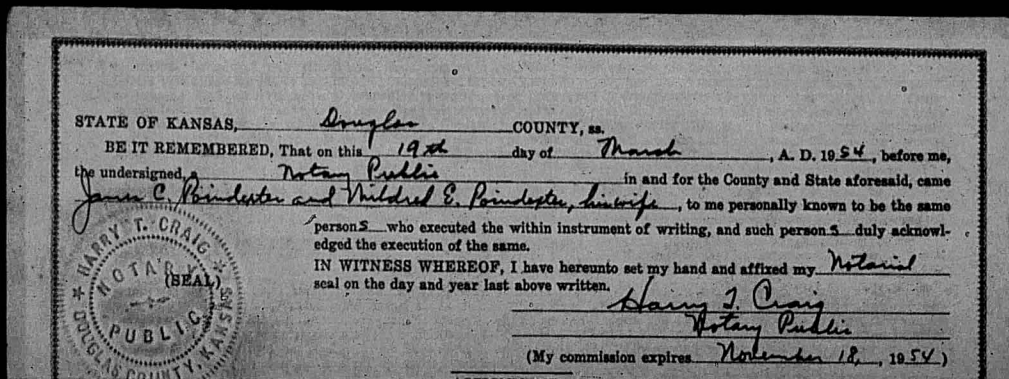 STATE OF KANSAS, Douglas COUNTY, ss.
BE IT REMEMBERED, That on this 19th day of March, A. D. 1954, before me,
the undersigned, a Notary Public in and for the County and State aforesaid, came
James C. Poindexter and Mildred E. Poindexter, his wife, to me personally known to be the same
persons who executed the within instrument of writing, and such persons duly acknowl-
edged the execution of the same.
IN WITNESS WHEREOF, I have hereunto set my hand and affixed my Notarial
seal on the day and year last above written.
Harry T. Craig
Notary Public
(My commission expires November 18, 1954)
HARRY T. CRAIG
NOTARY
(SEAL)
PUBLIC
DOUGLAS COUNTY, KANSAS